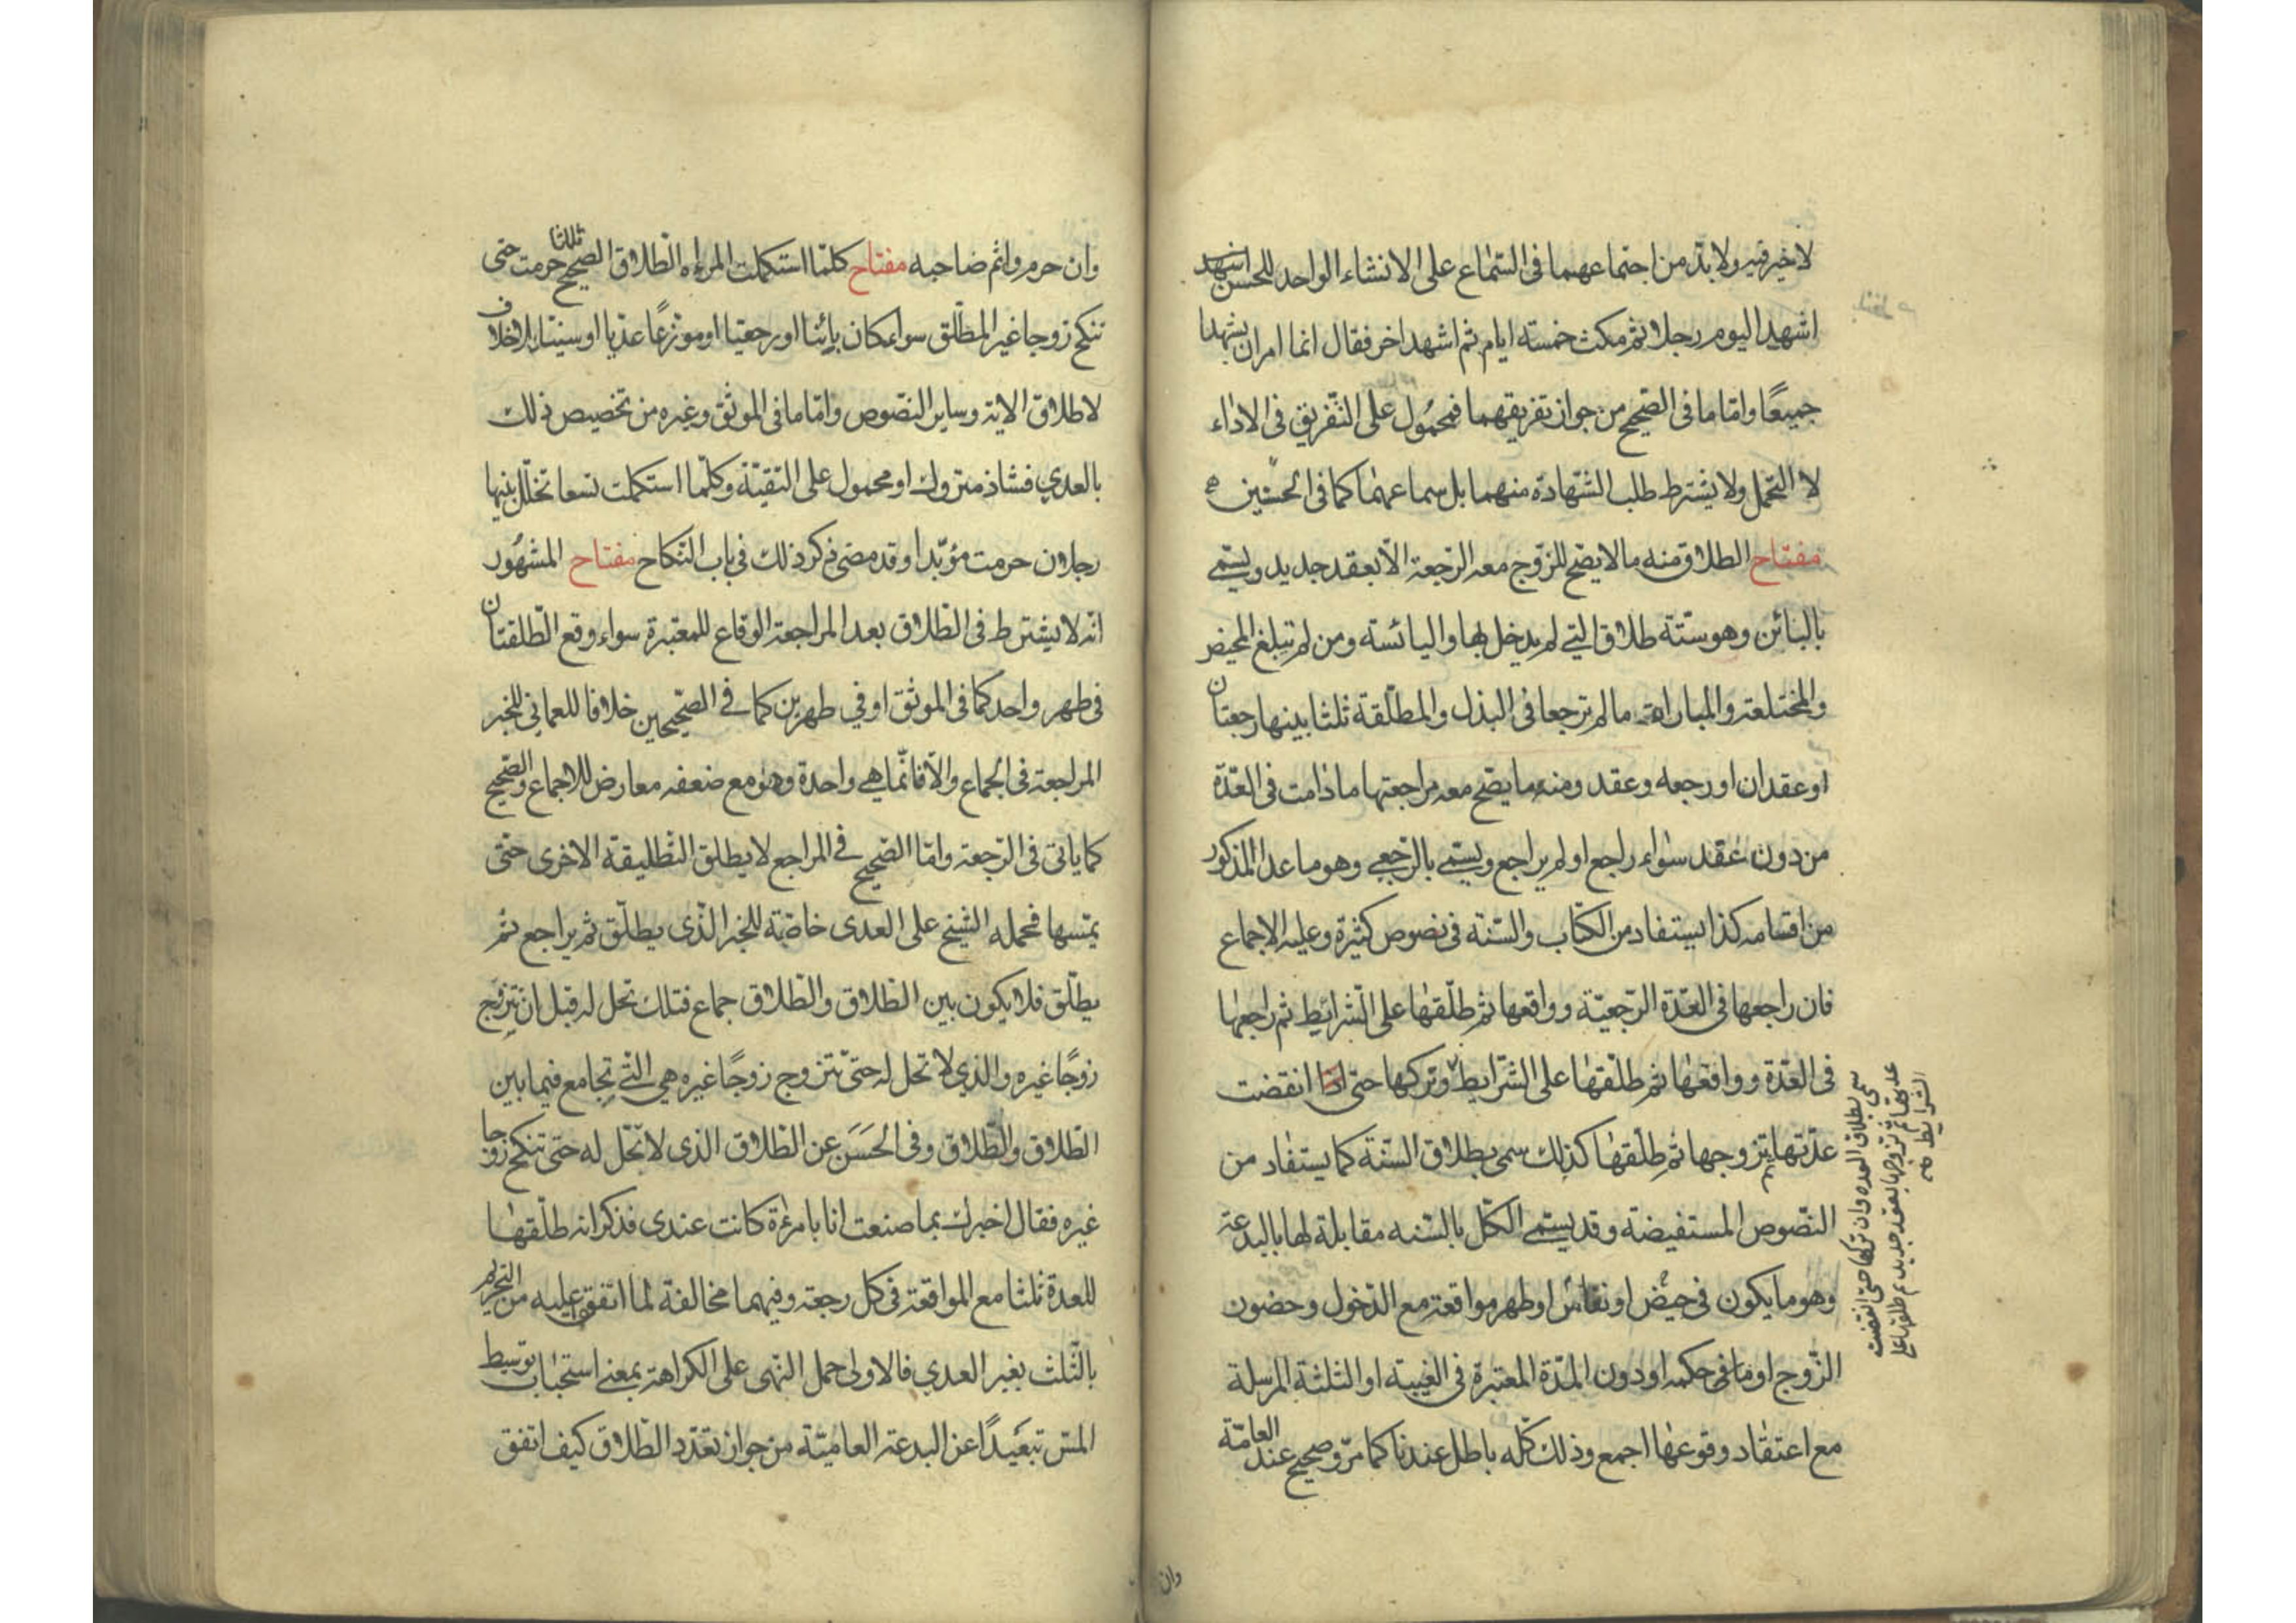 لا خير فيه ولا بد من اجتماعهما فى السّماع على الانشاء الواحد للحسن اشهد
اشهد اليوم رجلا ثم مكث خمسته ايام ثم اشهد اخر فقال انما امران يشهدا
جميعًا وامّا ما فى الصّحيح من جواز تفريقهما فمحمُول على التّفريق فى الاداء
لا التحمل ولا يشترط طلب الشّهادة منهما بل سماعهما كما فى الحسنين
مفتاح الطلاق منه ما لا يصّح للزّوج معه الرّجعة الّا بعقد جديد ويسمّى
بالبائن وهو ستّة طلاق التي لم يدخل بها واليائسة ومن لم تبلغ المحيض
والمختلعة والمباراة ما لم ترجعا فى البذل والمطلّقة ثلثا بينها رجعتان
او عقدان او رجعه وعقد ومنه ما يصّح معه مراجعتها ما دامت فى العّدة
من دون عقد سواء راجع او لم يراجع ويسمّى بالرّجعي وهو ما عدا المذكور
من اقسامه كذا يستفاد من الكتاب والسّنة فى نصوص كثيرة وعليه الاجماع
فان راجعها فى العّدة الرّجعيّة وواقعها ثم طلّقها على الشّرائط ثم راجعها
فى العّدة وواقعها ثم طلّقها على الشرّايط وتركها حتى اذا انقضت
عدّتها تزوجها ثم طلّقها كذلك سمى بطلاق السّنة كما يستفاد من
النّصوص المستفيضة وقد يسمّى الكلّ بالسّنه مقابلة لها بالبدعة
وهو ما يكون فى حيض او نفاس او طهر مواقعة مع الدّخول وحضون
الزّوج او ما فى حكمه او دون المدّة المعتبرة فى الغيبة او الثلثة المرسلة
مع اعتقاد وقوعها اجمع وذلك كلّه باطل عندنا كما مرّ وصحيح عند العامّة
سمى بطلاق العده وان تركها حتى انقضت
عدتها ثم تزوجها بعقد جديد ثم طلقها على
الشرايط صح
وان
وان حرم واثم صاحبه مفتاح كلمّا استكملت المراه الطّلاق الصّحيح ثلثا حرمت حتى
تنكح زوجا غير المطلّق سواء كان بائنا او رجعيا او موزعًا عدّيا او سنيّا بلا خلاف
لاطلاق الاية وساير النصّوص وامّا ما فى الموثق وغيره من تخصيص ذلك
بالعدي فشاذ متروك او محمول على التقيّة وكلّما استكملت تسعا تخلّل بينها
رجلان حرمت مؤبّدا وقد مضى ذكر ذلك فى باب النّكاح مفتاح المشهُور
انّه لا يشترط فى الطّلاق بعد المراجعة الوقاع للمعتبرة سواء وقع الطّلقتان
فى طهر واحد كما فى الموثق او في طهرين كما فى الصّحيحين خلافا للعماني للخبر
المراجعة فى الجماع والّا فانّما هي واحدة وهو مع ضعفه معارض للاجماع والصّحيح
كما ياتى فى الرّجعة وامّا الصّحيح فى المراجع لا يطلق التطّليقة الاخرى حتّى
يمّسها فحمله الشيخ على العدى خاصّة للخبر الّذى يطلّق ثم يراجع ثم
يطلّق فلا يكون بين الطّلاق والطّلاق جماع فتلك تحل له قبل ان تتزوج
زوجًا غيره والذي لا تحل له حتى تتزوج زوجًا غيره هي التّي تجامع فيما بين
الطّلاق والطّلاق وفى الحَسَن عن الطّلاق الذى لا تحّل له حتى تنكح زوجا
غيره فقال اخبرك بما صنعت انا بامرءة كانت عندى فذكر انه طلّقها
للعدة ثلثا مع المواقعة فى كل رجعة وفيهما مخالفة لما اتفق عليه من التحريم
بالثّلث بغير العدي فالاولى حمل النّهى على الكراهة بمعنى استحباب توسيط
المسّ تبعيدًا عن البدعة العاميّة من جواز تعدّد الطّلاق كيف اتفق